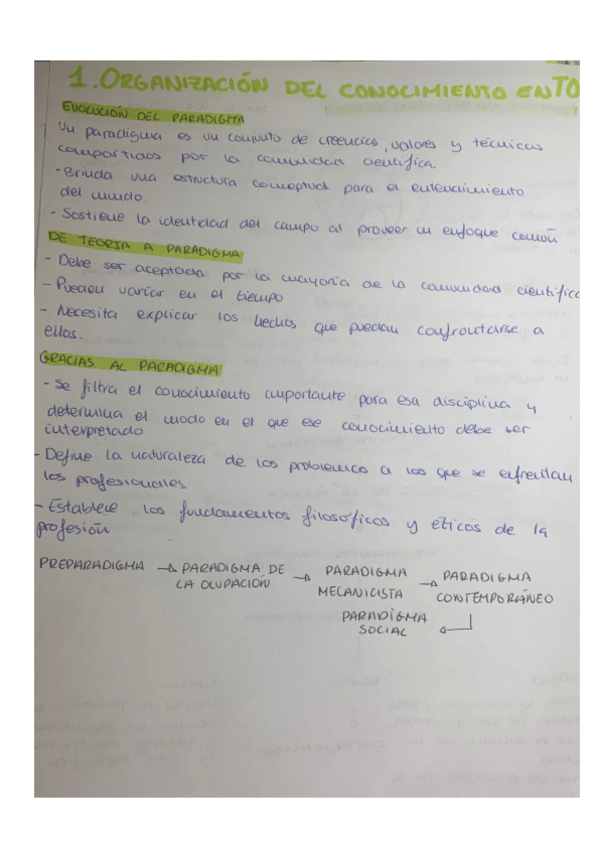 1. ORGANIZACIÓN DEL CONOCIMIENTO EN TO
EVOLUCIÓN DEL PARADIGMA
Un paradigma es un conjunto de creencias, valores y técnicas
compartidas por la comunidad científica.
- Brinda una estructura conceptual para el entendimiento
del mundo.
- Sostiene la identidad del campo al proveer un enfoque común
DE TEORIA A PARADIGMA
- Debe ser aceptada por la mayoría de la comunidad científica
- Pueden variar en el tiempo
- Necesita explicar los hechos que puedan confrontarse a
ellos.
GRACIAS AL PARADIGMA
- Se filtra el conocimiento importante para esa disciplina y
determina el modo en el que ese conocimiento debe ser
interpretado
- Define la naturaleza de los problemas a los que se enfrentan
los profesionales
- Establece los fundamentos filosóficos y éticos de la
profesión
PREPARADIGMA → PARADIGMA DE LA OCUPACIÓN → PARADIGMA MECANICISTA → PARADIGMA CONTEMPORÁNEO
PARADIGMA
SOCIAL